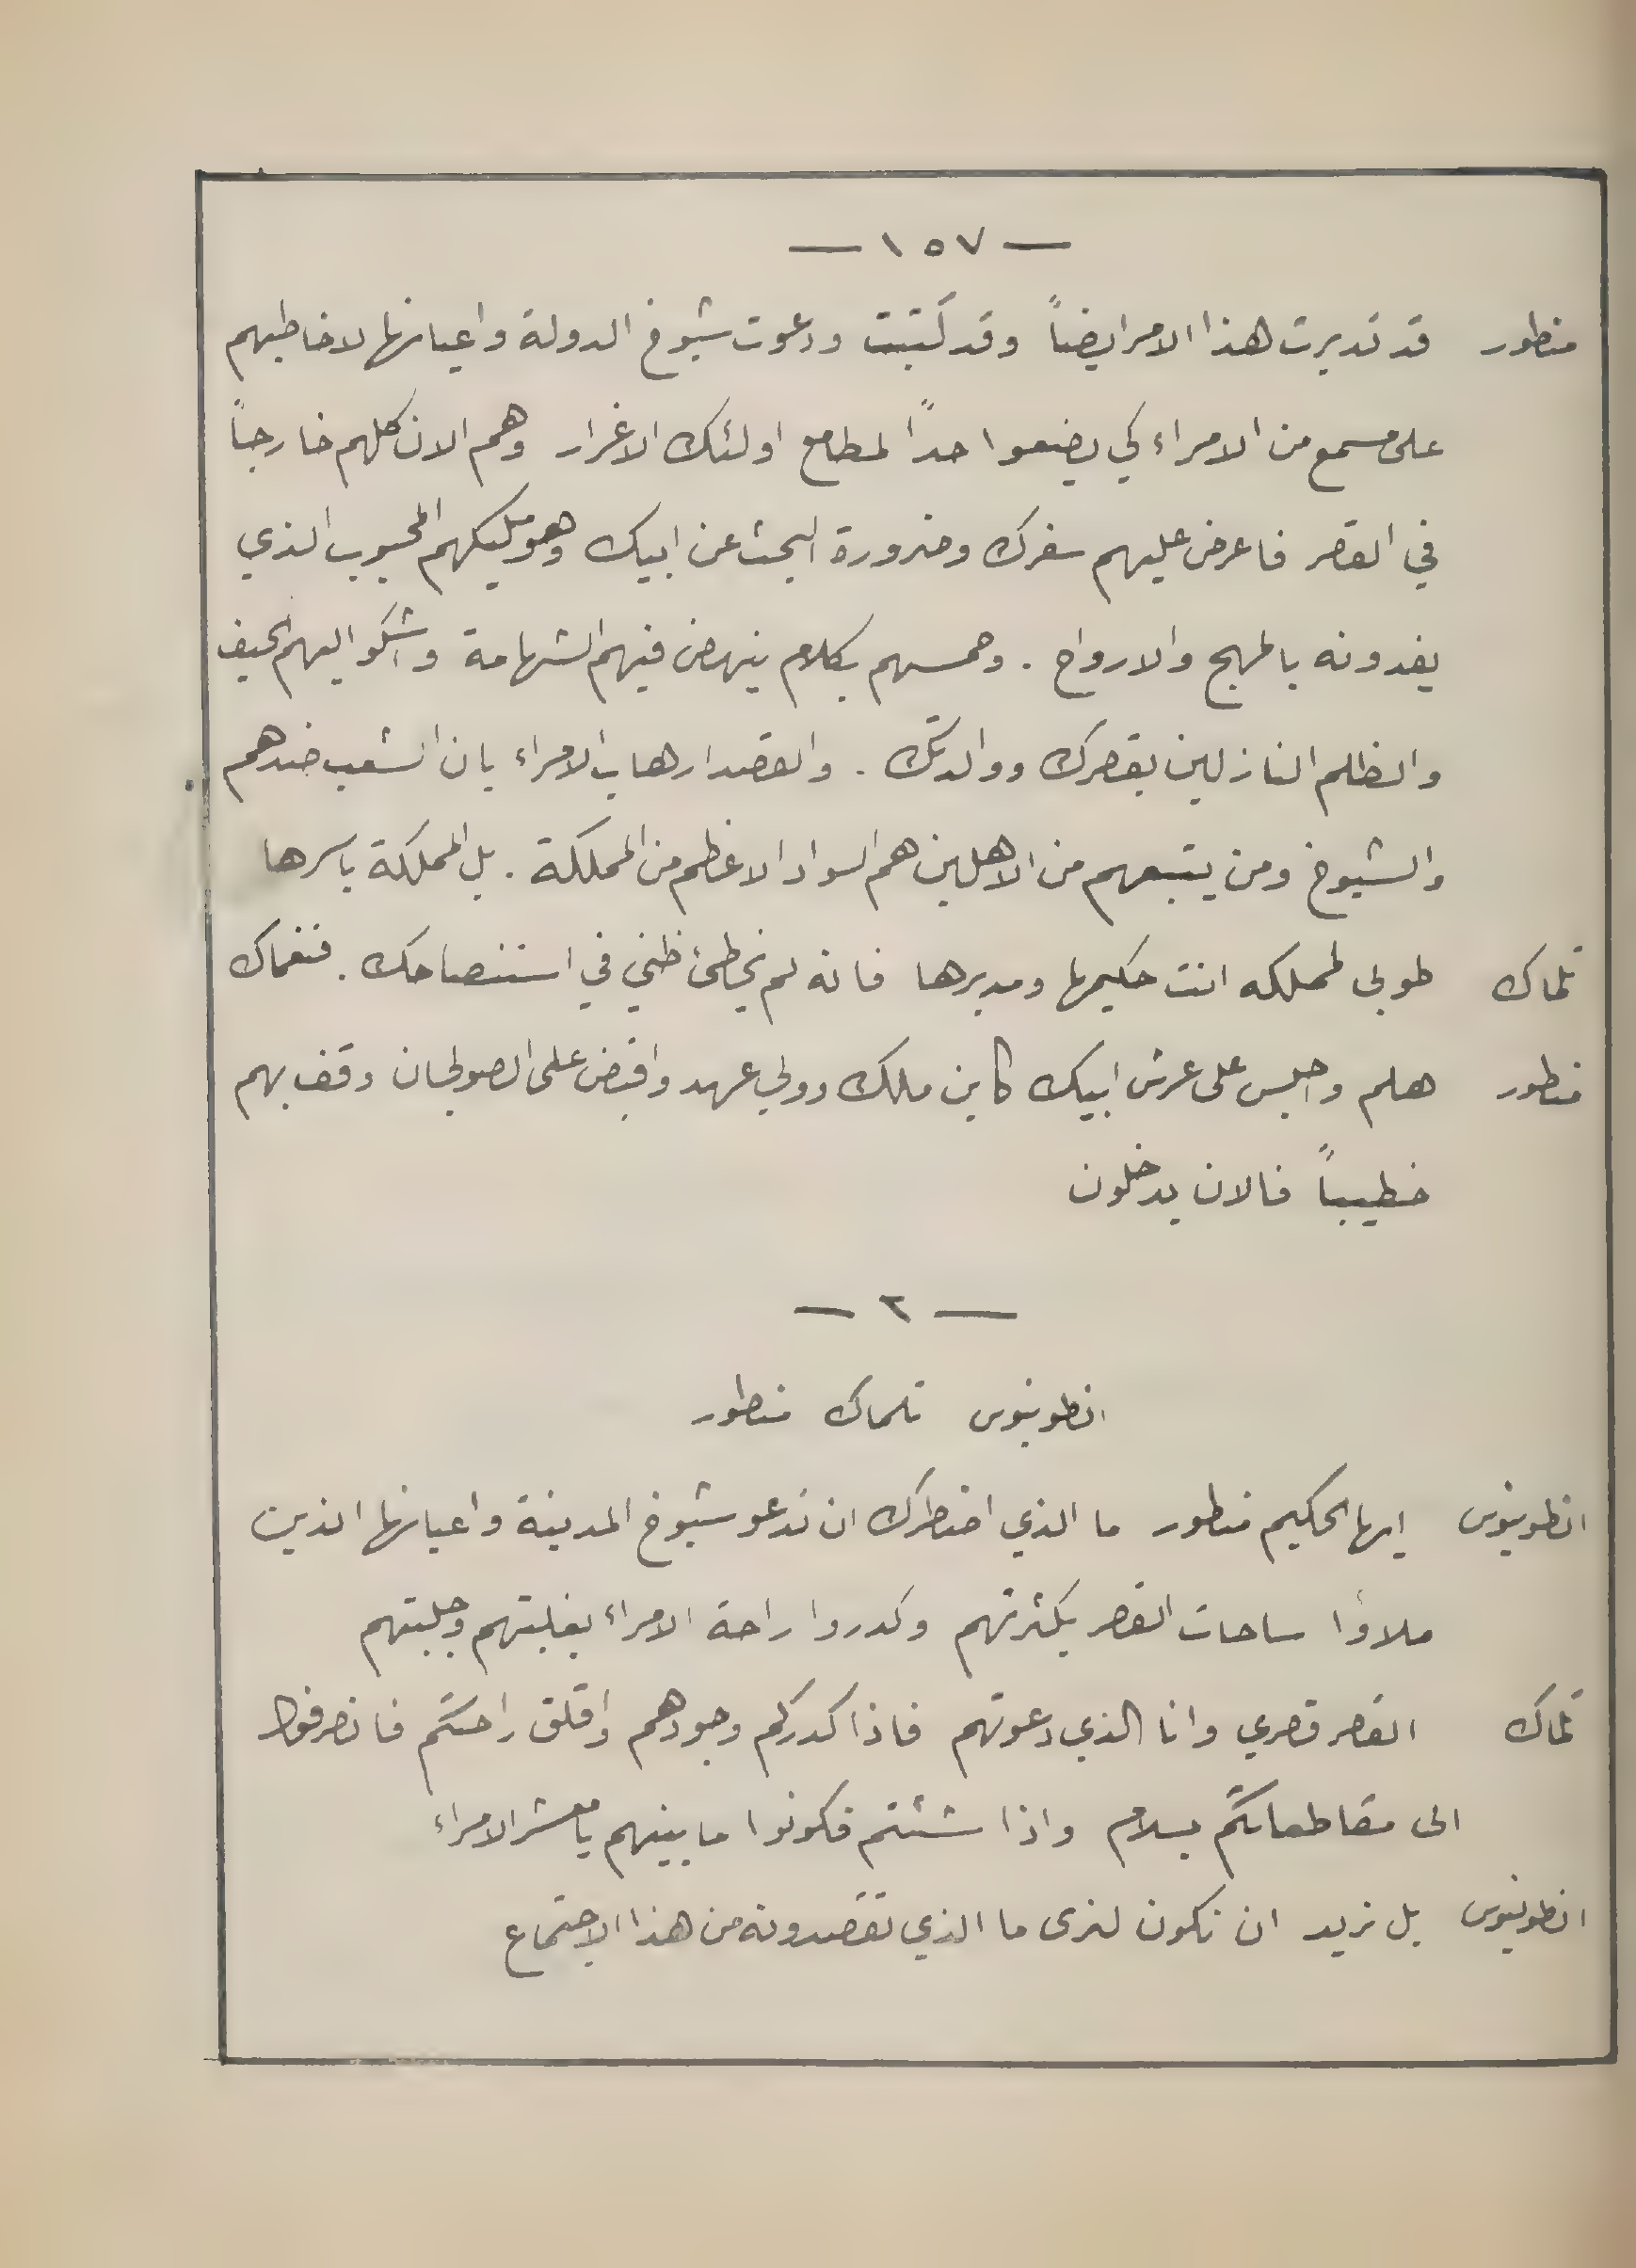 — ١٥٧ —
منطور قد تدبرت هذا الامر ايضاً وقد كتبت ودعوت شيوخ الدولة واعيانها لاخاطبهم
على مسمع من الامراء كي يضعوا حداً لمطامع اولئك الاغرار وهم الان كلهم خارجاً
في القصر فاعرض عليهم سفرك وضرورة البحث عن ابيك وهو مليكهم المحبوب الذي
يفدونه بالمهج والارواح . وحمسهم بكلام ينهض فيهم الشهامة واشكو اليهم الحيف
والظلم النازلين بقصرك ووالدتك . والقصد ارهاب الامراء بان الشعب ضدهم
والشيوخ ومن يتبعهم من الاهلين هم السواد الاعظم من المملكة . بل المملكة باسرها
تلماك طوبى لمملكه انت حكيمها ومدبرها فانه لم يخطئ ظني في استنصاحك . فنعماك
منطور هلم واجلس على عرش ابيك كابن ملك وولي عهد واقبض على الصولجان وقف بهم
خطيباً فالان يدخلون
— ٢ —
انطونيوس تلماك منطور
انطونيوس ايها الحكيم منطور ما الذي اضطرك ان تدعو شيوخ المدينة واعيانها الذين
ملاؤا ساحات القصر بكثرتهم وكدروا راحة الامراء بغلبتهم وجلبتهم
تلماك القصر قصري وانا الذي دعوتهم فاذا كدركم وجودهم واقلق راحتكم فانصرفوا
الى مقاطعاتكم بسلام واذا شئتم فكونوا ما بينهم يا معشر الامراء
انطونيوس بل نريد ان نكون لنرى ما الذي تقصدونه من هذا الاجتماع